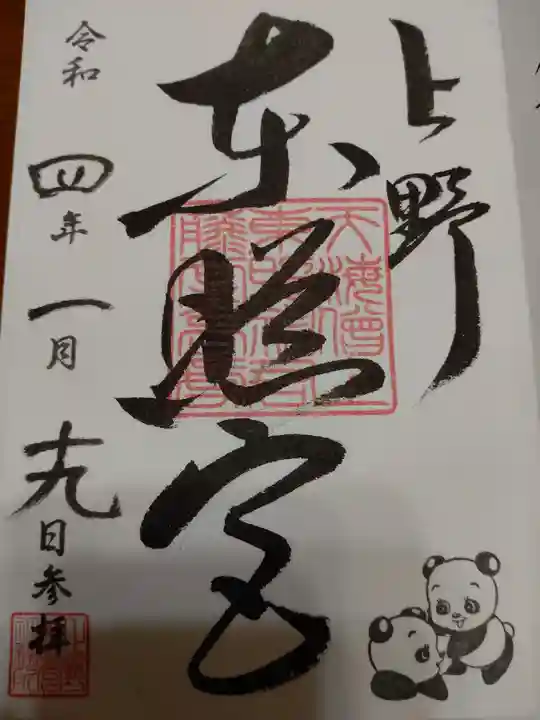 上野
東照宮
令和四年一月十九日参拝